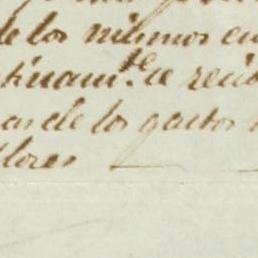 de los mismos en
tinuam.te se recib
as de los gastos
lores